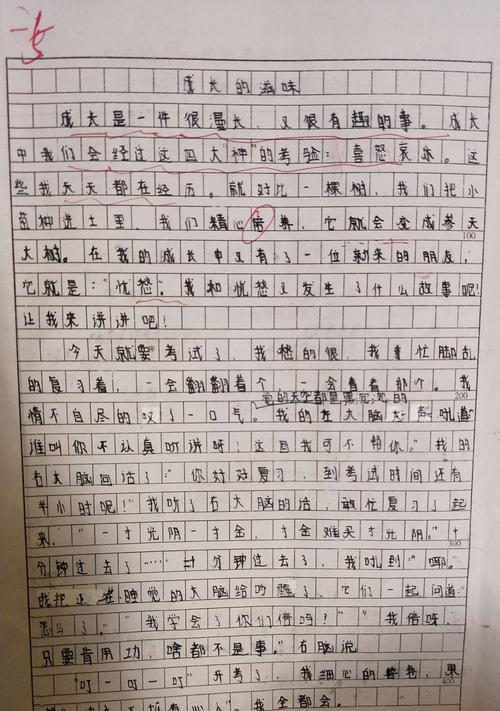 成长的滋味
成长是一件很漫长,又很有趣的事。成长
中我们会经过这四大神"的考验:喜怒哀乐。这
些我天天都在经历。就好比一棵树,我们把小
苗种进土里,我们精心陪养,它就会变成参天
100
大树。在我的成长中又有了一位新来的朋友,
它就是:"忧愁"。我和忧愁又发生了什么故事呢!
让我来讲讲吧!
今天就要考试了,我愁的很,我手忙脚乱
的复习着,一会翻翻着个,一会看看那个。我
觉的天空都是黑沉沉的
200
情不自尽的叹了一口气。我的左大脑大吼道
谁叫你不认真听讲呀!这回我可不帮你。"我的
右大脑回活了:"你好好复习,到考试时间还有
半小时呢!"我听了右大脑的话,敢忙复习了起
来,"一寸光阴一寸金,寸金难买寸光阴。"十
300
分钟过去了……分钟过去了,我吼到:"哪。
我把还在睡觉的大脑给吵醒了,它们一起问道:
怎么了。""我学会了你们信吗?""我信呀,
只要肯用功,啥都不是事。"右脑说
"叮一叮一叮"开考了,我细心的卷,果
400
我全都会。